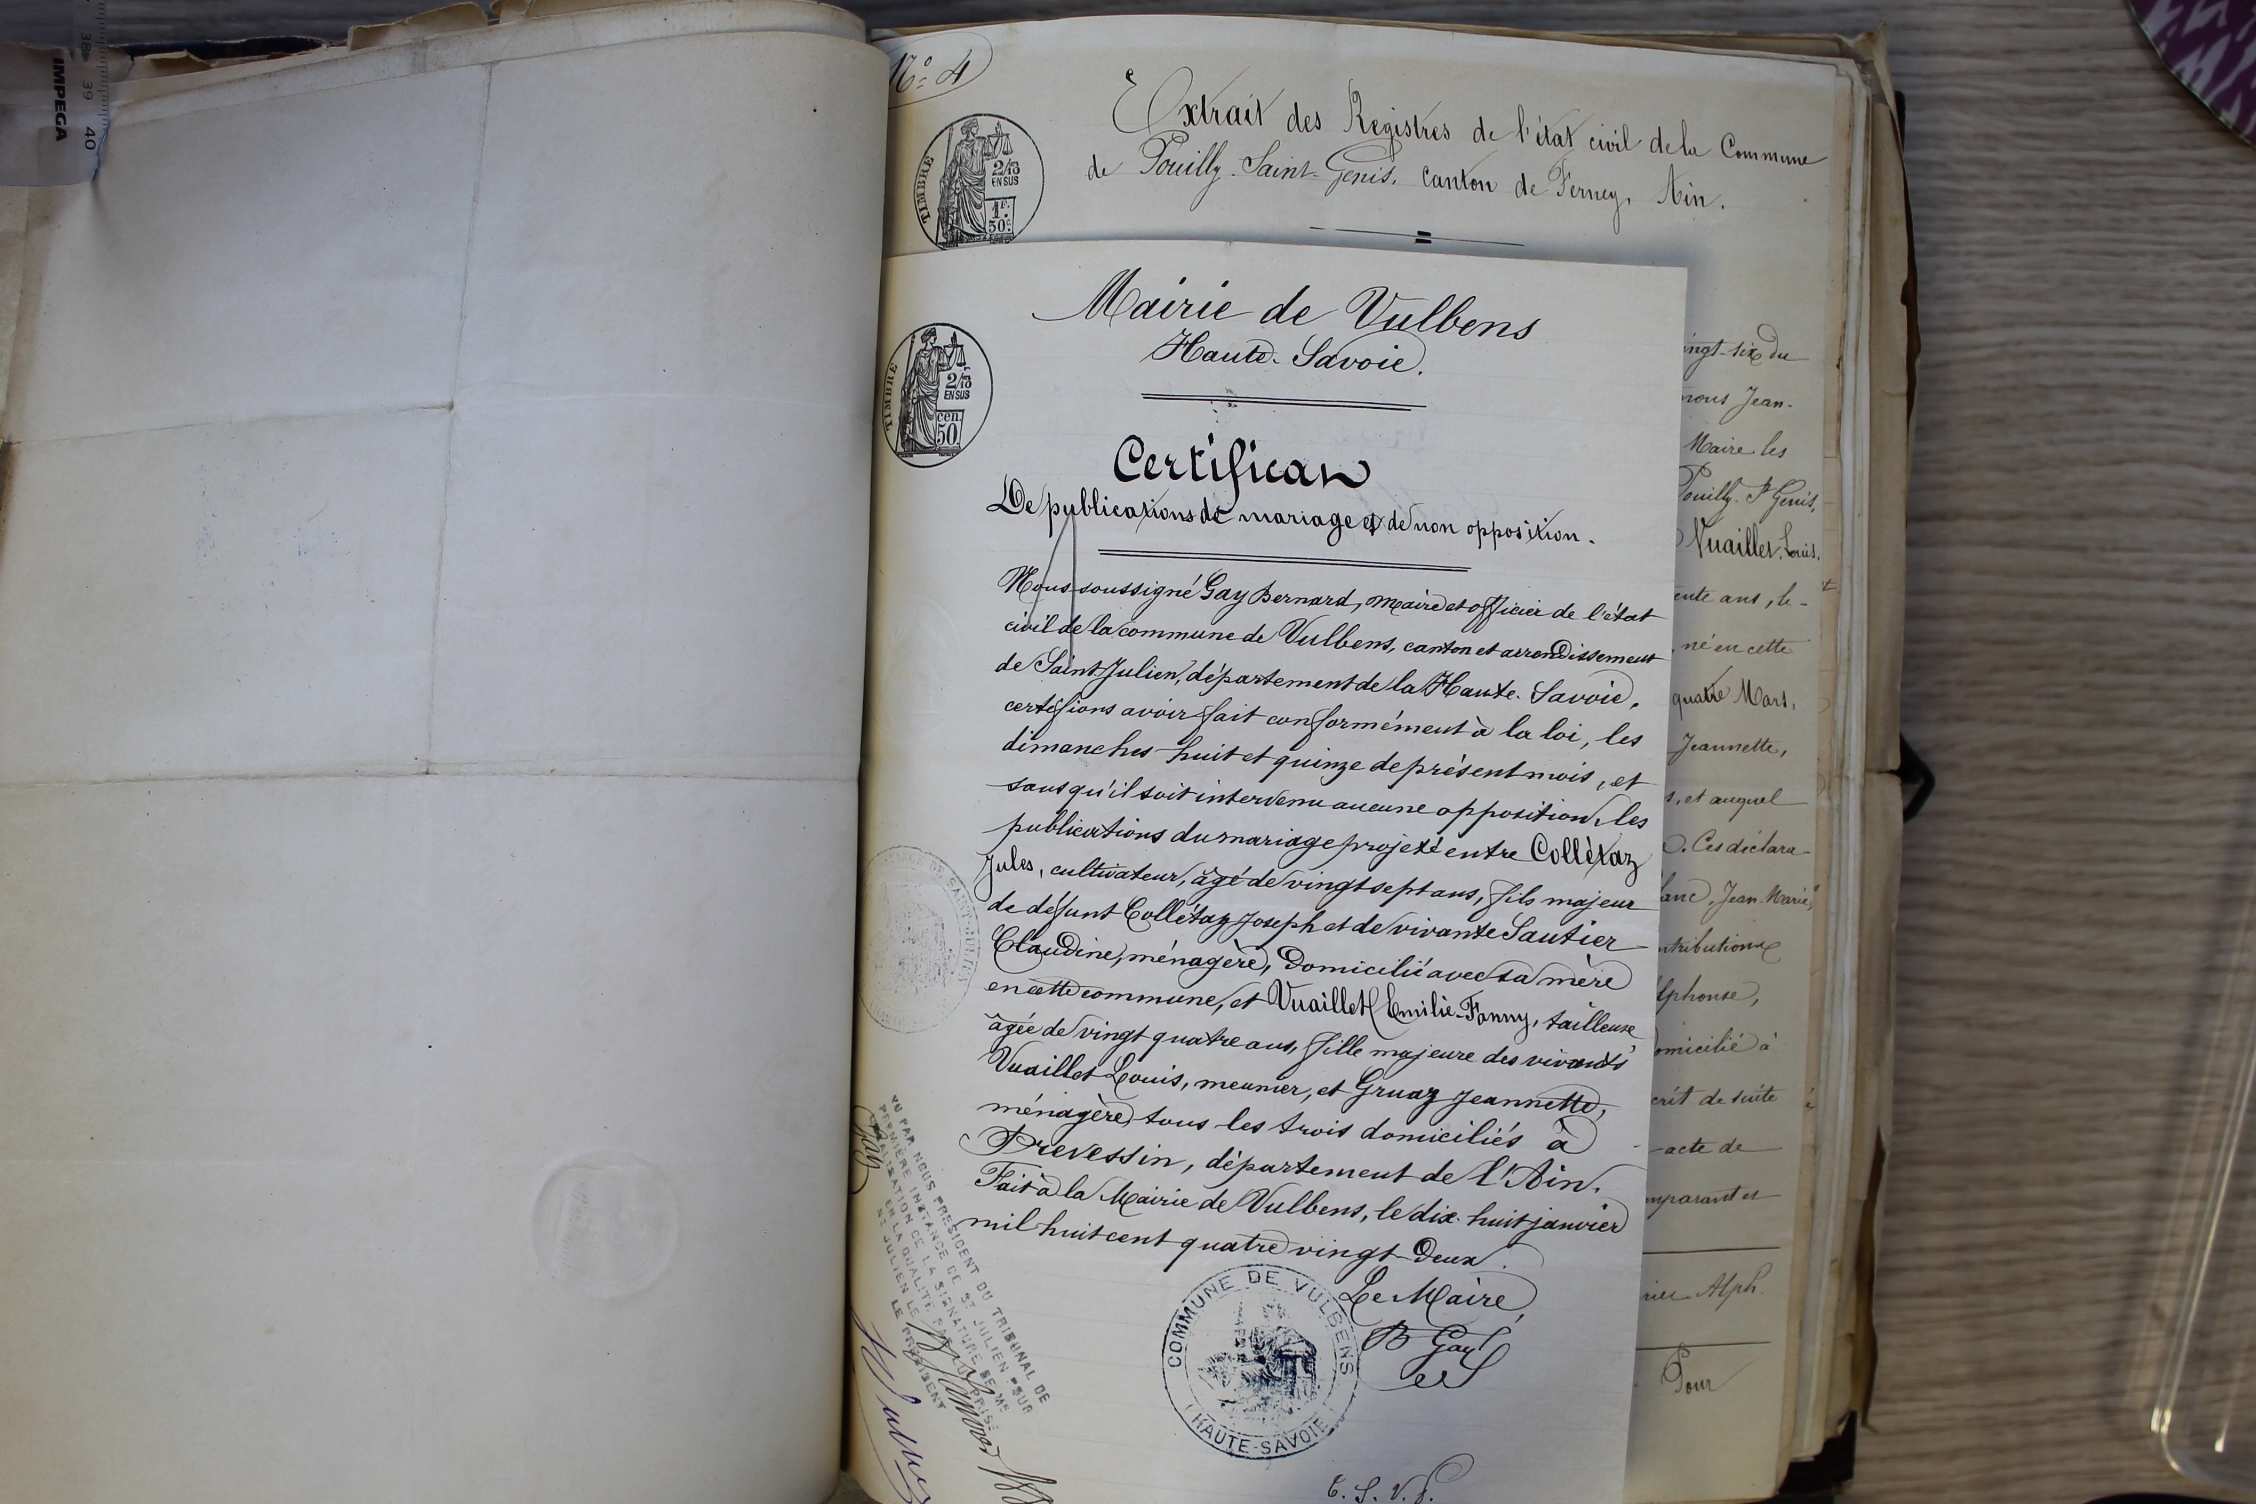 38 39 40
IMPEGA
N° 4
Extrait des Registres de l'état civil de la Commune
de Pouilly-Saint-Genis, canton de Ferney, Ain.
TIMBRE
2/10 EN SUS
1F. 50c.
Mairie de Vulbens
Haute-Savoie.
TIMBRE
2/10 EN SUS
cen. 50
Certificat
De publications de mariage et de non opposition.
Nous soussigné Gay Bernard, maire et officier de l'état
civil de la commune de Vulbens, canton et arrondissement
de Saint-Julien, département de la Haute-Savoie,
certifions avoir fait conformément à la loi, les
dimanches huit et quinze de présent mois, et
sans qu'il soit intervenu aucune opposition, les
publications du mariage projeté entre Collétaz
Jules, cultivateur, âgé de vingt sept ans, fils majeur
de défunt Collétaz Joseph et de vivante Sautier
Claudine, ménagère, domicilié avec sa mère
en cette commune, et Vuaillet Emilie-Fanny, tailleuse
âgée de vingt quatre ans, fille majeure des vivants
Vuaillet Louis, meunier, et Gruaz Jeannette,
ménagère, tous les trois domiciliés à
Prevessin, département de l'Ain.
Fait à la Mairie de Vulbens, le dix-huit janvier
mil huit cent quatre vingt-deux.
Le Maire,
B Gay
COMMUNE DE VULBENS
HAUTE-SAVOIE
T. S. V. P.
VU PAR NOUS PRÉSIDENT DU TRIBUNAL DE
PREMIÈRE INSTANCE DE ST JULIEN POUR
LÉGALISATION DE LA SIGNATURE DE Mr
Gay
EN LA QUALITÉ PAR LUI PRISE
ST JULIEN LE
LE PRÉSIDENT
ingt-six du
nous Jean-
Maire les
Pouilly-St Genis,
Vuaillet, Louis,
ente ans, le-
né en cette
quatre Mars,
Jeannette,
s, et auquel
Ces déclara-
lanc, Jean-Marie,
ntributions
lphonse,
omicilié à
crit de suite
acte de
mparant et
Alph.
Pour